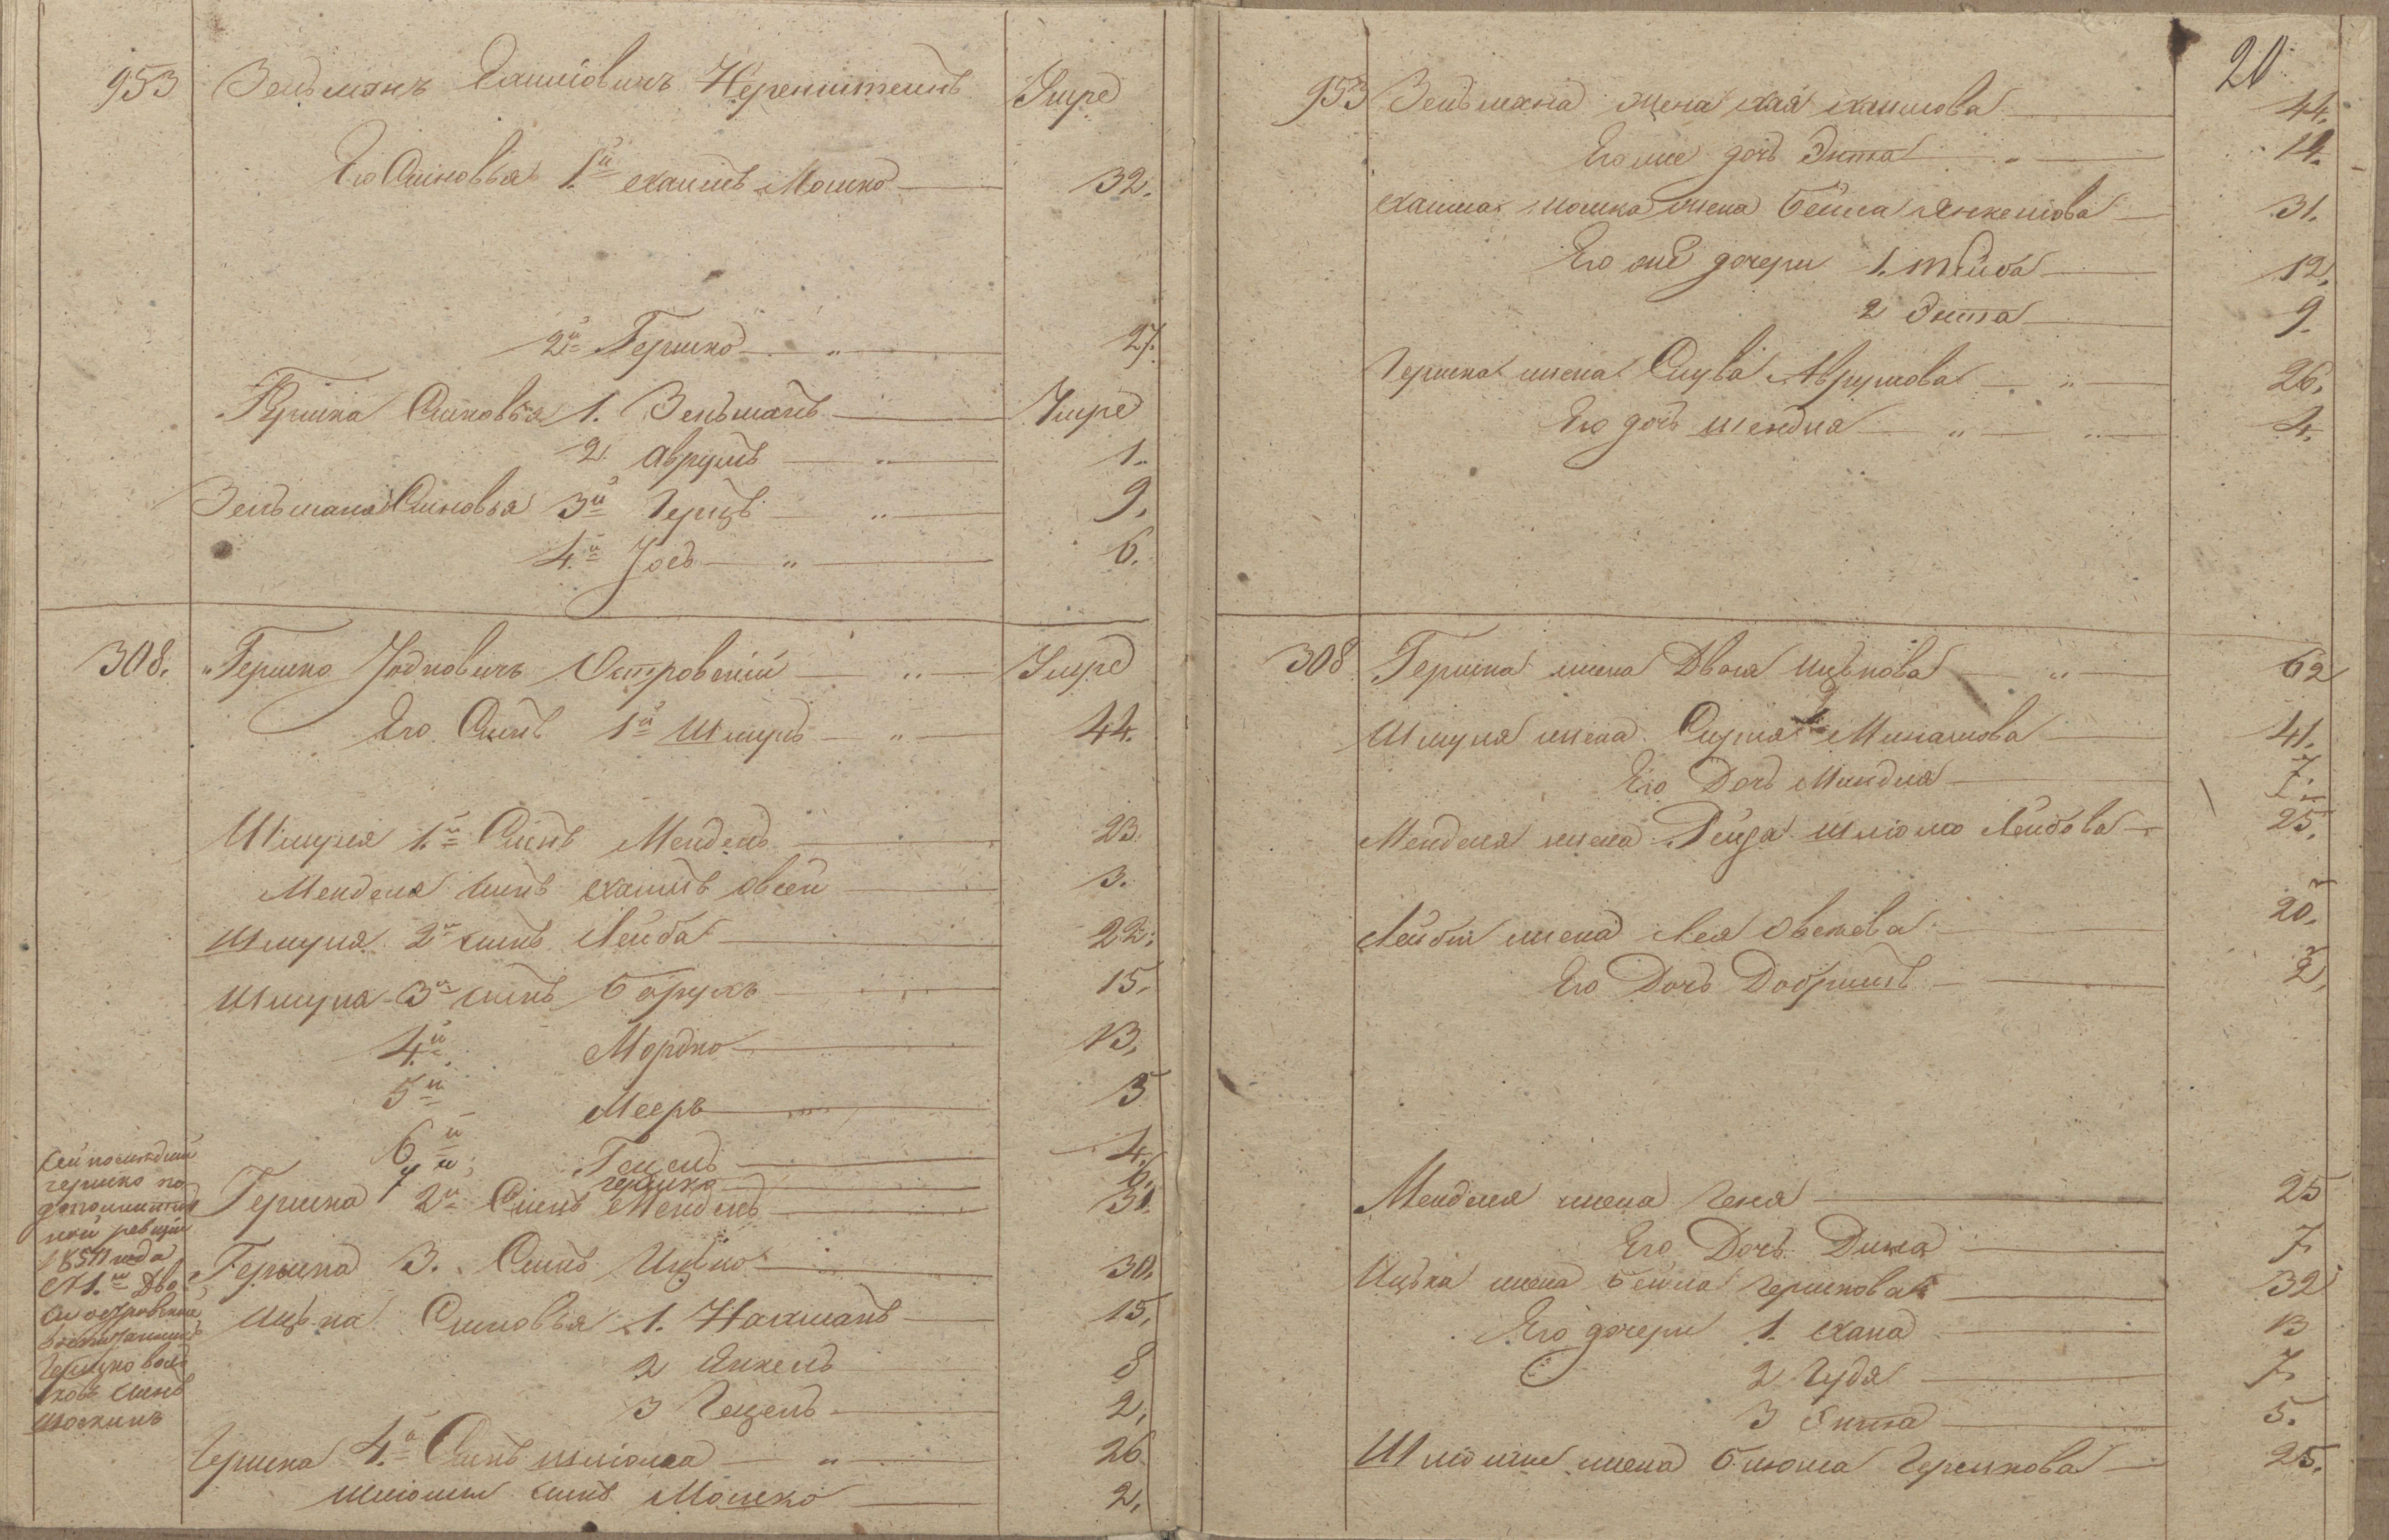 953 Зельманъ Хаимовичъ Неренштеинъ Умре
Его Сыновья 1й Хаимъ Мошко 32.
2й Гершко „ 27.
Гершка Сыновья 1. Зельманъ Умре
2. Аврумъ „ 1.
Зельмана Сыновья 3й Герцъ „ 9.
4й Іосъ „ 6.
308. Гершко Юдковичъ Островскій „ Умре
Его Сынъ 1й Шмуль „ 44.
Шмуля 1й Сынъ Мендель 23.
Менделя сынъ Хаимъ Овсей 3.
Шмуля 2й сынъ Лейба 22.
Шмуля 3й сынъ Борухъ 15.
4й Мордко 13.
5й Мееръ 5
6й Гецель 4.
7й Гершко 6.
Гершка 2й Сынъ Мендель 31.
Гершка 3. Сынъ Ицько 30.
Ицька Сыновья 1. Нахманъ 15.
2 Янкель 8
3 Гецель 2.
Гершка 4й Сынъ Шліома „ 26
Шліомы сынъ Мошко 2.
Сей последній
Гершко по
ской ревизіи
года
сынъ
20
953 Зельмана жена Хая Хаимова 44.
Его же дочь Энта „ 19.
Хаима Мошка жена Бейла Янкелова 31.
Его же дочери 1. Тйиба 12.
2 Энта 9.
Гершка жена Слува Аврумова „ 26.
Его дочь Шендля „ 4.
308 Гершка жена Двоя Ицькова „ 62
Шмуля жена Сурля Минашова 41.
Его Дочь Миндля 7.
Менделя жена Рейза Шліомо Лейбова 25.
Лейбы жена Лея Овсеева 20.
Его Дочь Добрышъ 2.
Менделя жена Геня 25
Его Дочь Дина 7
Ицька жена Бейла Гершкова 32
Его дочери 1. Хана 13
2 Гудя 7
3 Энта 5.
Шліомы жена Блюма Гершкова 25.